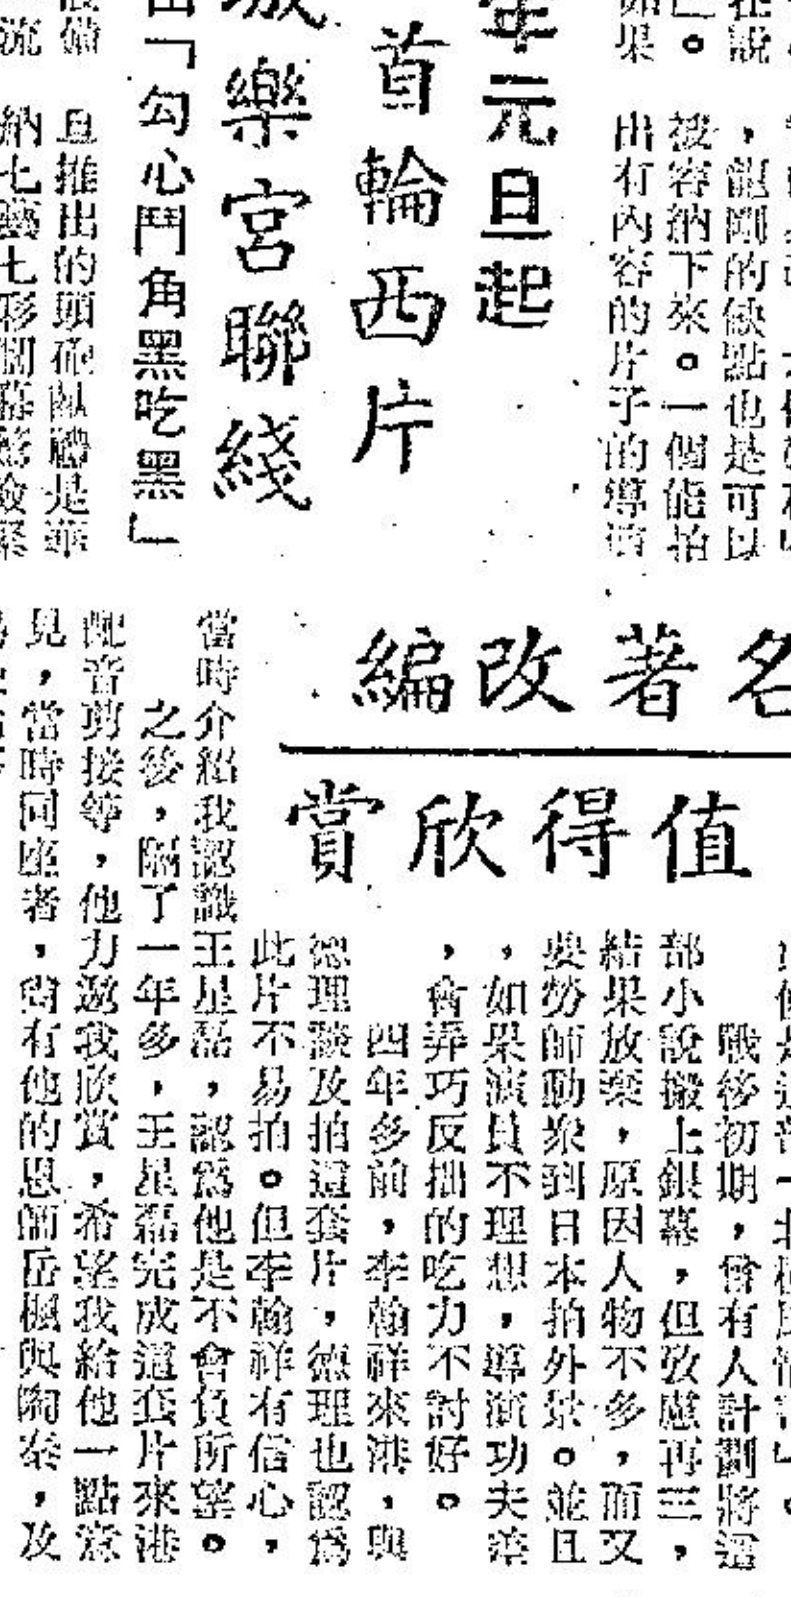 在說
，龍剛的缺點也是可以
」。
接容納下來。一個能拍
如果
出有內容的片子的導演
年元旦起
首輪西片
樂宮聯綫
「勾心鬥角黑吃黑」
且推出的頭砲献禮是華
流
名著改編
值得欣賞
戰後初期，曾有人計劃將這
部小說搬上銀幕，但攷慮再三，
結果放棄，原因人物不多，而又
要勞師動衆到日本拍外景。並且
，如果演員不理想，導演功夫差
，會弄巧反拙的吃力不討好。
四年多前，李翰祥來港，與
德理談及拍這套片，德理也認爲
此片不易拍。但李翰祥有信心，
當時介紹我認識王星磊，認爲他是不會負所望。
之後，隔了一年多，王星磊完成這套片來港
配音剪接等，他力邀我欣賞，希望我給他一點意
見，當時同座者，尚有他的恩師岳楓與陶秦，及